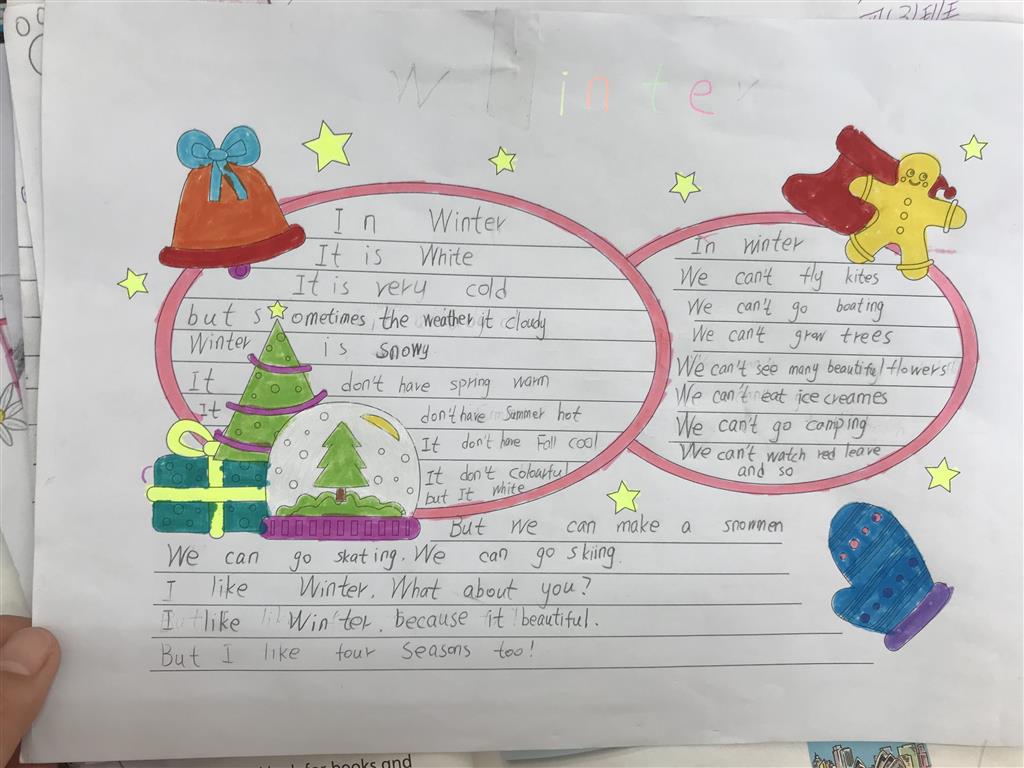 Winter
In Winter
It is White
It is very cold
but sometimes the weather it cloudy
Winter is snowy
It don't have spring warm
It don't have Summer hot
It don't have Fall cool
It don't colourful
but It white
In winter
We can't fly kites
We can't go boating
We can't grow trees
We can't see many beautiful flowers
We can't eat ice creames
We can't go camping
We can't watch red leave
and so
But We can make a snowmen
We can go skating. We can go skiing.
I like Winter. What about you?
I like Winter, because it beautiful.
But I like four Seasons too!
for books and